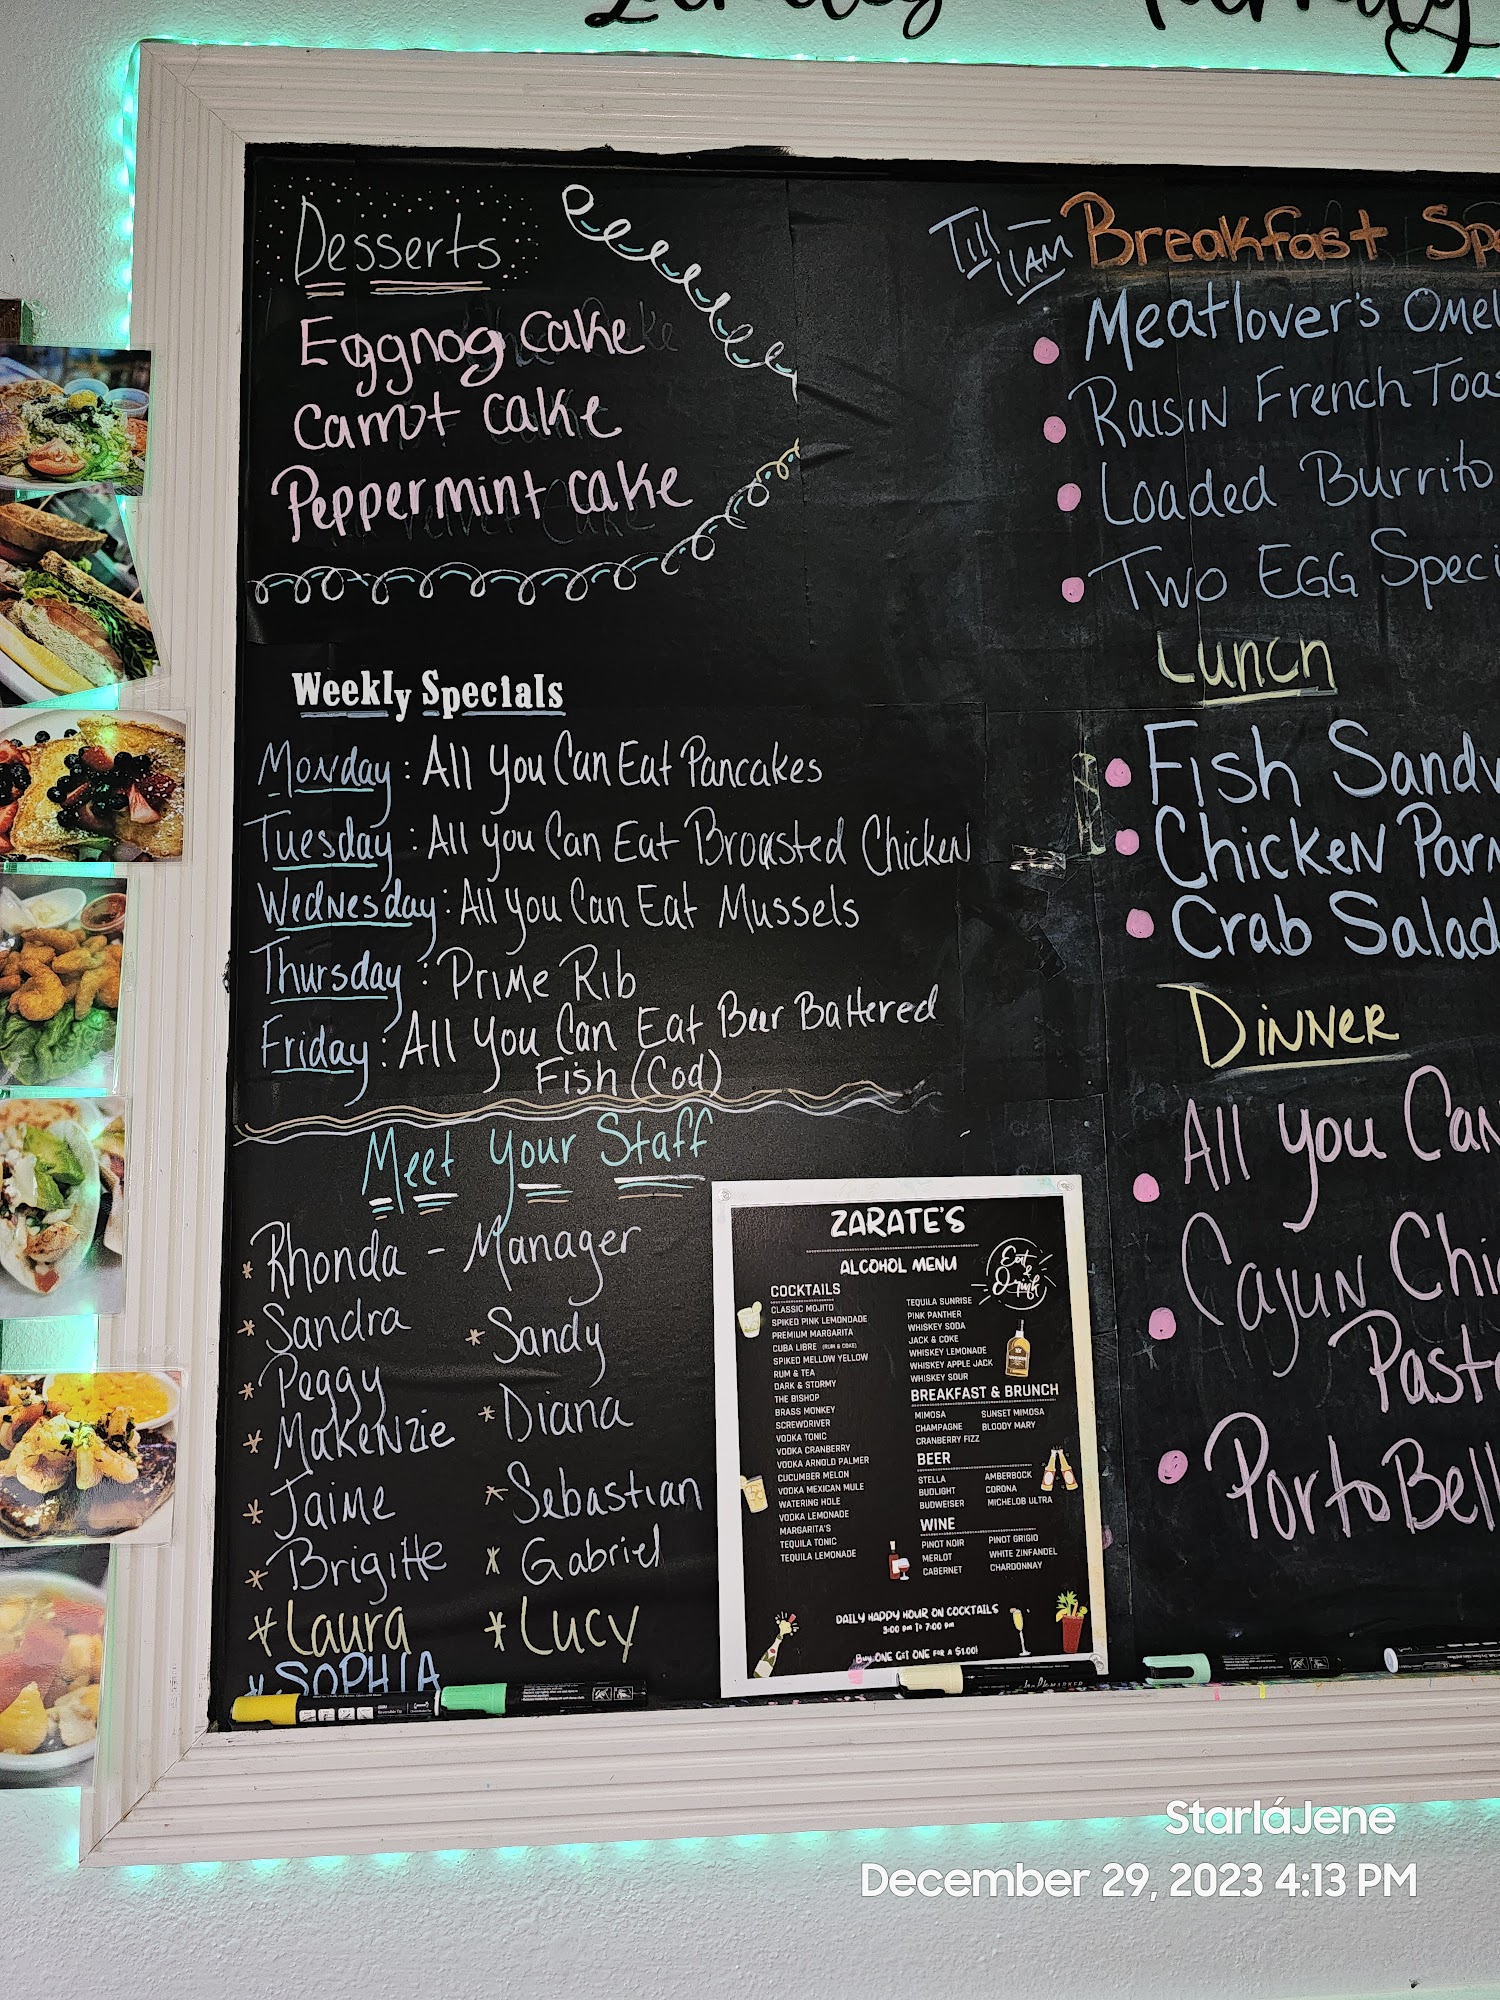 Desserts
Eggnog Cake
Carrot Cake
Peppermint Cake
Weekly Specials
Monday: All You Can Eat Pancakes
Tuesday: All You Can Eat Broasted Chicken
Wednesday: All You Can Eat Mussels
Thursday: Prime Rib
Friday: All You Can Eat Beer Battered
Fish (Cod)
Meet Your Staff
* Rhonda - Manager
* Sandra
* Sandy
* Peggy
* Diana
* Makenzie
* Jaime
* Sebastian
* Brigitte
* Gabriel
* Laura
* Lucy
* SOPHIA
ZARATE'S
ALCOHOL MENU
Eat & Drink
COCKTAILS
CLASSIC MOJITO
SPIKED PINK LEMONDADE
PREMIUM MARGARITA
CUBA LIBRE (RUM & COKE)
SPIKED MELLOW YELLOW
RUM & TEA
DARK & STORMY
THE BISHOP
BRASS MONKEY
SCREWDRIVER
VODKA TONIC
VODKA CRANBERRY
VODKA ARNOLD PALMER
CUCUMBER MELON
VODKA MEXICAN MULE
WATERING HOLE
VODKA LEMONADE
MARGARITA'S
TEQUILA TONIC
TEQUILA LEMONADE
TEQUILA SUNRISE
PINK PANTHER
WHISKEY SODA
JACK & COKE
WHISKEY LEMONADE
WHISKEY APPLE JACK
WHISKEY SOUR
BREAKFAST & BRUNCH
MIMOSA SUNSET MIMOSA
CHAMPAGNE BLOODY MARY
CRANBERRY FIZZ
BEER
STELLA AMBERBOCK
BUDLIGHT CORONA
BUDWEISER MICHELOB ULTRA
WINE
PINOT NOIR PINOT GRIGIO
MERLOT WHITE ZINFANDEL
CABERNET CHARDONNAY
DAILY HAPPY HOUR ON COCKTAILS
3:00 PM To 7:00 PM
Buy ONE GET ONE FOR A $1.00!
Till 11AM
Breakfast Sp
Meatlover's Omel
Raisin French Toas
Loaded Burrito
Two EGG Speci
Lunch
Fish Sandw
Chicken Parm
Crab Salad
Dinner
All you Can
Cajun Chi
Pasta
PortoBell
StarláJene
December 29, 2023 4:13 PM